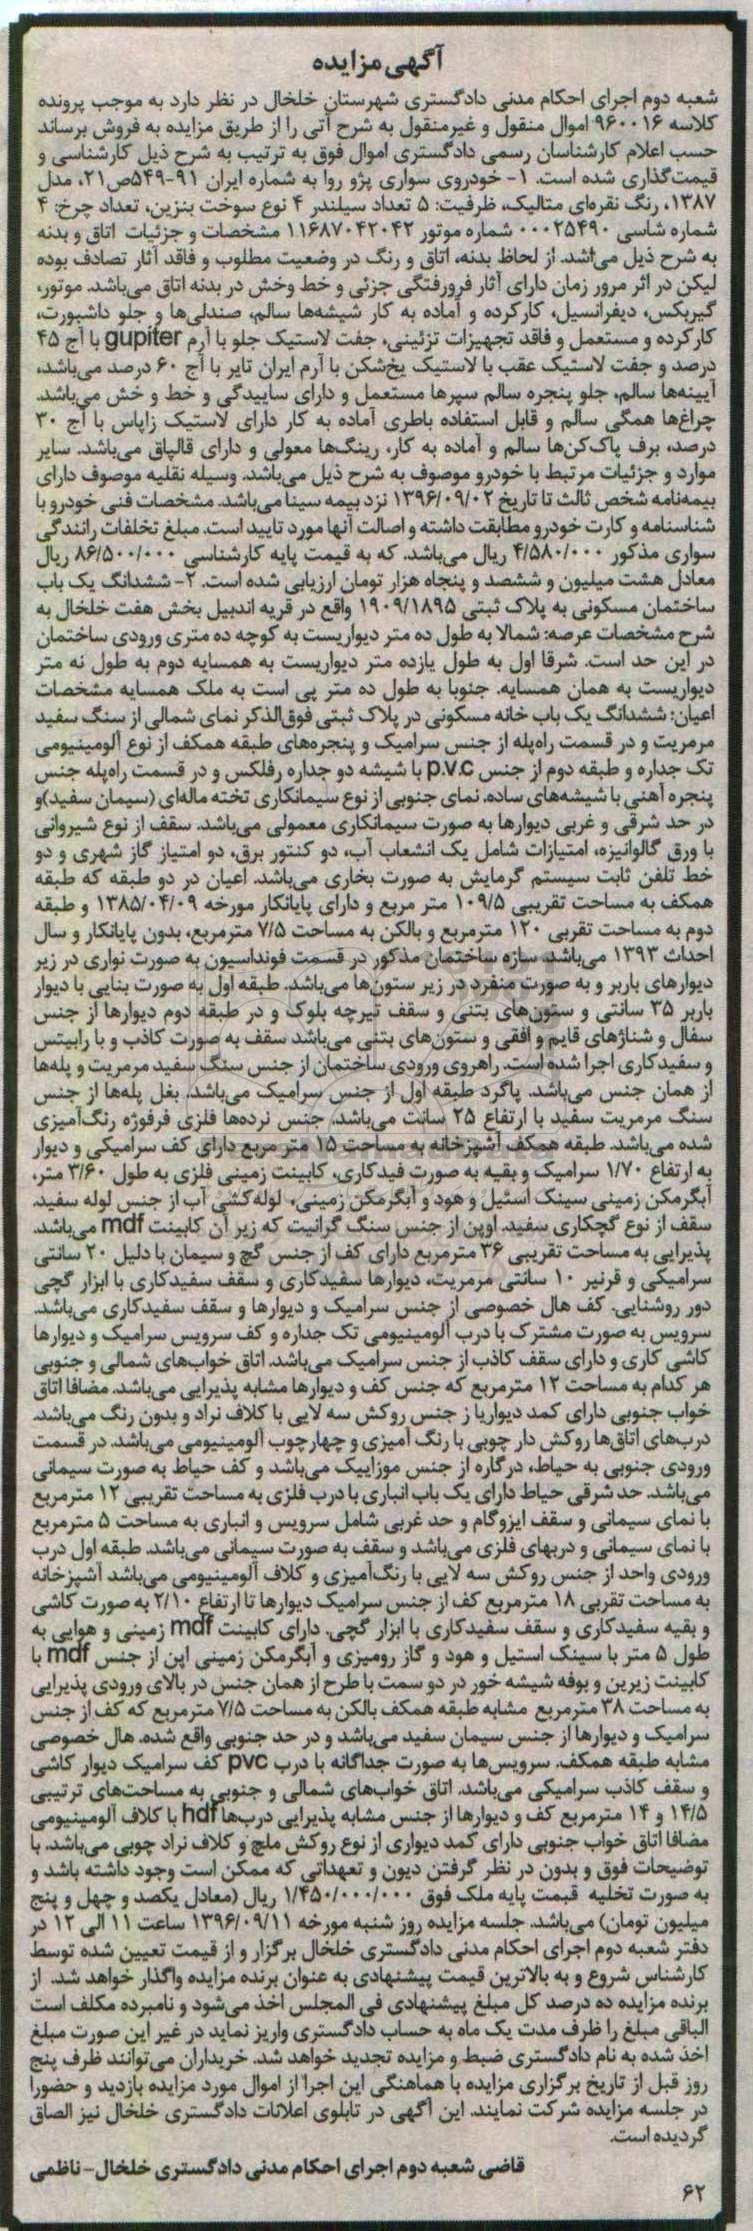 آگهی مزایده
شعبه دوم اجرای احکام مدنی دادگستری شهرستان خلخال در نظر دارد به موجب پرونده
کلاسه ۹۶۰۰۱۶ اموال منقول و غیرمنقول به شرح آتی را از طریق مزایده به فروش برساند
حسب اعلام کارشناسان رسمی دادگستری اموال فوق به ترتیب به شرح ذیل کارشناسی و
قیمت‌گذاری شده است. ۱- خودروی سواری پژو روا به شماره ایران ۹۱-۵۴۹ص۲۱، مدل
۱۳۸۷، رنگ نقره‌ای متالیک، ظرفیت: ۵ تعداد سیلندر ۴ نوع سوخت بنزین، تعداد چرخ: ۴
شماره شاسی ۰۰۰۲۵۴۹۰ شماره موتور ۱۱۶۸۷۰۴۲۰۴۲ مشخصات و جزئیات اتاق و بدنه
به شرح ذیل می‌اشد. از لحاظ بدنه، اتاق و رنگ در وضعیت مطلوب و فاقد آثار تصادف بوده
لیکن در اثر مرور زمان دارای آثار فرورفتگی جزئی و خط وخش در بدنه اتاق می‌باشد. موتور،
گیربکس، دیفرانسیل، کارکرده و آماده به کار شیشه‌ها سالم، صندلی‌ها و جلو داشبورت،
کارکرده و مستعمل و فاقد تجهیزات تزئینی، جفت لاستیک جلو با آرم gupiter با آج ۴۵
درصد و جفت لاستیک عقب با لاستیک یخ‌شکن با آرم ایران تایر با آج ۶۰ درصد می‌باشد،
آیینه‌ها سالم، جلو پنجره سالم سپرها مستعمل و دارای ساییدگی و خط و خش می‌باشد.
چراغ‌ها همگی سالم و قابل استفاده باطری آماده به کار دارای لاستیک زاپاس با آج ۳۰
درصد، برف پاک‌کن‌ها سالم و آماده به کار، رینگ‌ها معولی و دارای قالپاق می‌باشد. سایر
موارد و جزئیات مرتبط با خودرو موصوف به شرح ذیل می‌باشد. وسیله نقلیه موصوف دارای
بیمه‌نامه شخص ثالث تا تاریخ ۱۳۹۶/۰۹/۰۲ نزد بیمه سینا می‌باشد. مشخصات فنی خودرو با
شناسنامه و کارت خودرو مطابقت داشته و اصالت آنها مورد تایید است. مبلغ تخلفات رانندگی
سواری مذکور ۴/۵۸۰/۰۰۰ ریال می‌باشد. که به قیمت پایه کارشناسی ۸۶/۵۰۰/۰۰۰ ریال
معادل هشت میلیون و ششصد و پنجاه هزار تومان ارزیابی شده است. ۲- ششدانگ یک باب
ساختمان مسکونی به پلاک ثبتی ۱۹۰۹/۱۸۹۵ واقع در قریه اندبیل بخش هفت خلخال به
شرح مشخصات عرصه: شمالا به طول ده متر دیواریست به کوچه ده متری ورودی ساختمان
در این حد است. شرقا اول به طول یازده متر دیواریست به همسایه دوم به طول نه متر
دیواریست به همان همسایه. جنوبا به طول ده متر پی است به ملک همسایه مشخصات
اعیان: ششدانگ یک باب خانه مسکونی در پلاک ثبتی فوق‌الذکر نمای شمالی از سنگ سفید
مرمریت و در قسمت راه‌پله از جنس سرامیک و پنجره‌های طبقه همکف از نوع آلومینیومی
تک جداره و طبقه دوم از جنس p.v.c با شیشه دو جداره رفلکس و در قسمت راه‌پله جنس
پنجره آهنی با شیشه‌های ساده. نمای جنوبی از نوع سیمانکاری تخته ماله‌ای (سیمان سفید)و
در حد شرقی و غربی دیوارها به صورت سیمانکاری معمولی می‌باشد. سقف از نوع شیروانی
با ورق گالوانیزه، امتیازات شامل یک انشعاب آب، دو کنتور برق، دو امتیاز گاز شهری و دو
خط تلفن ثابت سیستم گرمایش به صورت بخاری می‌باشد. اعیان در دو طبقه که طبقه
همکف به مساحت تقریبی ۱۰۹/۵ متر مربع و دارای پایانکار مورخه ۱۳۸۵/۰۴/۰۹ و طبقه
دوم به مساحت تقربی ۱۲۰ مترمربع و بالکن به مساحت ۷/۵ مترمربع، بدون پایانکار و سال
احداث ۱۳۹۳ می‌باشد. سازه ساختمان مذکور در قسمت فونداسیون به صورت نواری در زیر
دیوارهای باربر و به صورت منفرد در زیر ستون‌ها می‌باشد. طبقه اول به صورت بنایی با دیوار
باربر ۳۵ سانتی و ستون‌های بتنی و سقف تیرچه بلوک و در طبقه دوم دیوارها از جنس
سفال و شناژهای قایم و افقی و ستون‌های بتنی می‌باشد سقف به صورت کاذب و با رابیتس
و سفیدکاری اجرا شده است. راهروی ورودی ساختمان از جنس سنگ سفید مرمریت و پله‌ها
از همان جنس می‌باشد. پاگرد طبقه اول از جنس سرامیک می‌باشد. بغل پله‌ها از جنس
سنگ مرمریت سفید با ارتفاع ۲۵ سانت می‌باشد. جنس نرده‌ها فلزی فرفوژه رنگ‌آمیزی
شده می‌باشد. طبقه همکف آشپزخانه به مساحت ۱۵ متر مربع دارای کف سرامیکی و دیوار
به ارتفاع ۱/۷۰ سرامیک و بقیه به صورت فیدکاری، کابینت زمینی فلزی به طول ۳/۶۰ متر،
آبگرمکن زمینی سینک استیل و هود و آبگرمکن زمینی، لوله‌کشی آب از جنس لوله سفید.
سقف از نوع گچکاری سفید. اوپن از جنس سنگ گرانیت که زیر آن کابینت mdf می‌باشد.
پذیرایی به مساحت تقریبی ۳۶ مترمربع دارای کف از جنس گچ و سیمان با دلیل ۲۰ سانتی
سرامیکی و قرنیز ۱۰ سانتی مرمریت، دیوارها سفیدکاری و سقف سفیدکاری با ابزار گچی
دور روشنایی. کف هال خصوصی از جنس سرامیک و دیوارها و سقف سفیدکاری می‌باشد.
سرویس به صورت مشترک با درب آلومینیومی تک جداره و کف سرویس سرامیک و دیوارها
کاشی کاری و دارای سقف کاذب از جنس سرامیک می‌باشد. اتاق خواب‌های شمالی و جنوبی
هر کدام به مساحت ۱۲ مترمربع که جنس کف و دیوارها مشابه پذیرایی می‌باشد. مضافا اتاق
خواب جنوبی دارای کمد دیواریا ز جنس روکش سه لایی با کلاف نراد و بدون رنگ می‌باشد.
درب‌های اتاق‌ها روکش دار چوبی با رنگ آمیزی و چهارچوب آلومینیومی می‌باشد. در قسمت
ورودی جنوبی به حیاط، درگاره از جنس موزاییک می‌باشد و کف حیاط به صورت سیمانی
می‌باشد. حد شرقی حیاط دارای یک باب انباری با درب فلزی به مساحت تقریبی ۱۲ مترمربع
با نمای سیمانی و سقف ایزوگام و حد غربی شامل سرویس و انباری به مساحت ۵ مترمربع
با نمای سیمانی و دربهای فلزی می‌باشد و سقف به صورت سیمانی می‌باشد. طبقه اول درب
ورودی واحد از جنس روکش سه لایی با رنگ‌آمیزی و کلاف آلومینیومی می‌باشد آشپزخانه
به مساحت تقربی ۱۸ مترمربع کف از جنس سرامیک دیوارها تا ارتفاع ۲/۱۰ به صورت کاشی
و بقیه سفیدکاری و سقف سفیدکاری با ابزار گچی. دارای کابینت mdf زمینی و هوایی به
طول ۵ متر با سینک استیل و هود و گاز رومیزی و آبگرمکن زمینی اپن از جنس mdf با
کابینت زیرین و بوفه شیشه خور در دو سمت با طرح از همان جنس در بالای ورودی پذیرایی
به مساحت ۳۸ مترمربع مشابه طبقه همکف بالکن به مساحت ۷/۵ مترمربع که کف از جنس
سرامیک و دیوارها از جنس سیمان سفید می‌باشد و در حد جنوبی واقع شده. هال خصوصی
مشابه طبقه همکف. سرویس‌ها به صورت جداگانه با درب pvc کف سرامیک دیوار کاشی
و سقف کاذب سرامیکی می‌باشد. اتاق خواب‌های شمالی و جنوبی به مساحت‌های ترتیبی
۱۴/۵ و ۱۴ مترمربع کف و دیوارها از جنس مشابه پذیرایی درب‌ها hdf با کلاف آلومینیومی
مضافا اتاق خواب جنوبی دارای کمد دیواری از نوع روکش ملچ و کلاف نراد چوبی می‌باشد. با
توضیحات فوق و بدون در نظر گرفتن دیون و تعهداتی که ممکن است وجود داشته باشد و
به صورت تخلیه قیمت پایه ملک فوق ۱/۴۵۰/۰۰۰/۰۰۰ ریال (معادل یکصد و چهل و پنج
میلیون تومان) می‌باشد. جلسه مزایده روز شنبه مورخه ۱۳۹۶/۰۹/۱۱ ساعت ۱۱ الی ۱۲ در
دفتر شعبه دوم اجرای احکام مدنی دادگستری خلخال برگزار و از قیمت تعیین شده توسط
کارشناس شروع و به بالاترین قیمت پیشنهادی به عنوان برنده مزایده واگذار خواهد شد. از
برنده مزایده ده درصد کل مبلغ پیشنهادی فی المجلس اخذ می‌شود و نامبرده مکلف است
الباقی مبلغ را ظرف مدت یک ماه به حساب دادگستری واریز نماید در غیر این صورت مبلغ
اخذ شده به نام دادگستری ضبط و مزایده تجدید خواهد شد. خریداران می‌توانند ظرف پنج
روز قبل از تاریخ برگزاری مزایده با هماهنگی این اجرا از اموال مورد مزایده بازدید و حضورا
در جلسه مزایده شرکت نمایند. این آگهی در تابلوی اعلانات دادگستری خلخال نیز الصاق
گردیده است.
قاضی شعبه دوم اجرای احکام مدنی دادگستری خلخال- ناظمی
۶۲